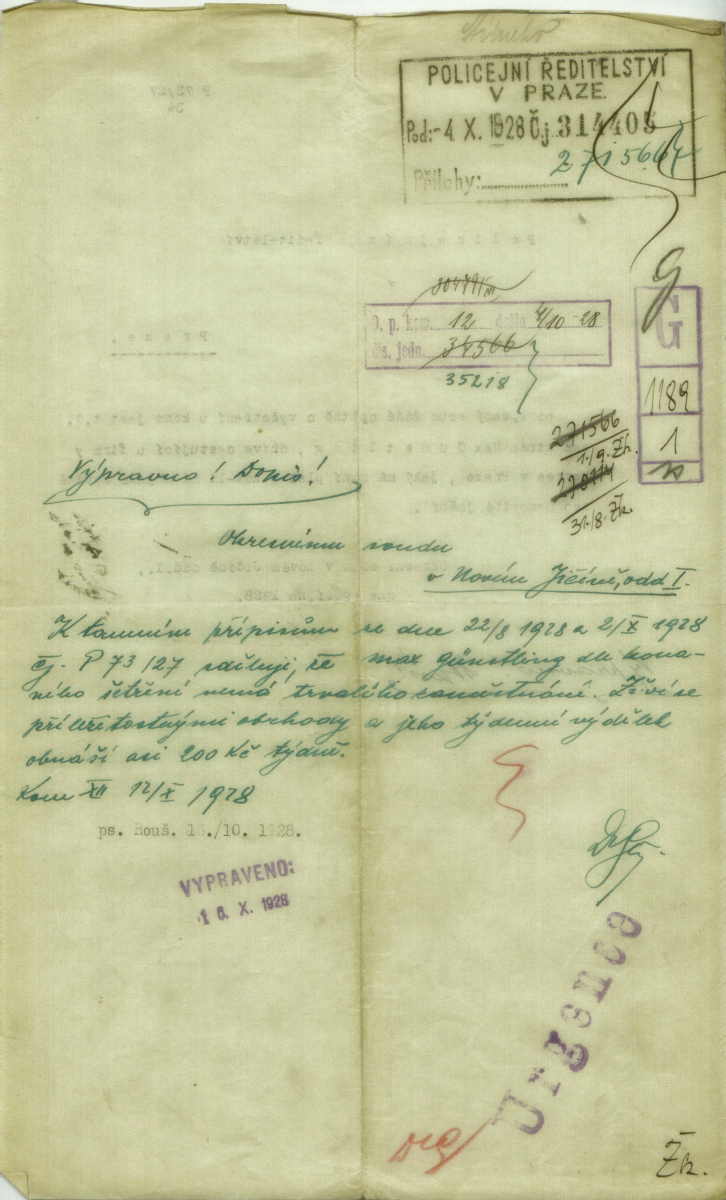 POLICEJNÍ ŘEDITELSTVÍ
V PRAZE.
Pod: -4. X. 1928 Čj. 314405
2715667
Přílohy:
O. p. kom. 12 došlo 4/10 -28
čís. jedn. 34566
35218
G
G
1189
1
271566
1./9. Žk.
31./8. Žk.
Výpravno! Dopis!
Okresnímu soudu
v Novém Jičíně, odd I.
K tamním přípisům ze dne 22/8 1928 a 2/X 1928
čj. P 73/27 sděluji, že Max Günstling dle kona-
ného šetření nemá trvalého zaměstnání. Živí se
příležitostnými obchody a jeho týdenní výdělek
obnáší asi 200 Kč týdně.
Kom XII 12/X 1928
ps. Rouš. 15./10. 1928.
VYPRAVENO:
16. X. 1928
Urgence
Žk.